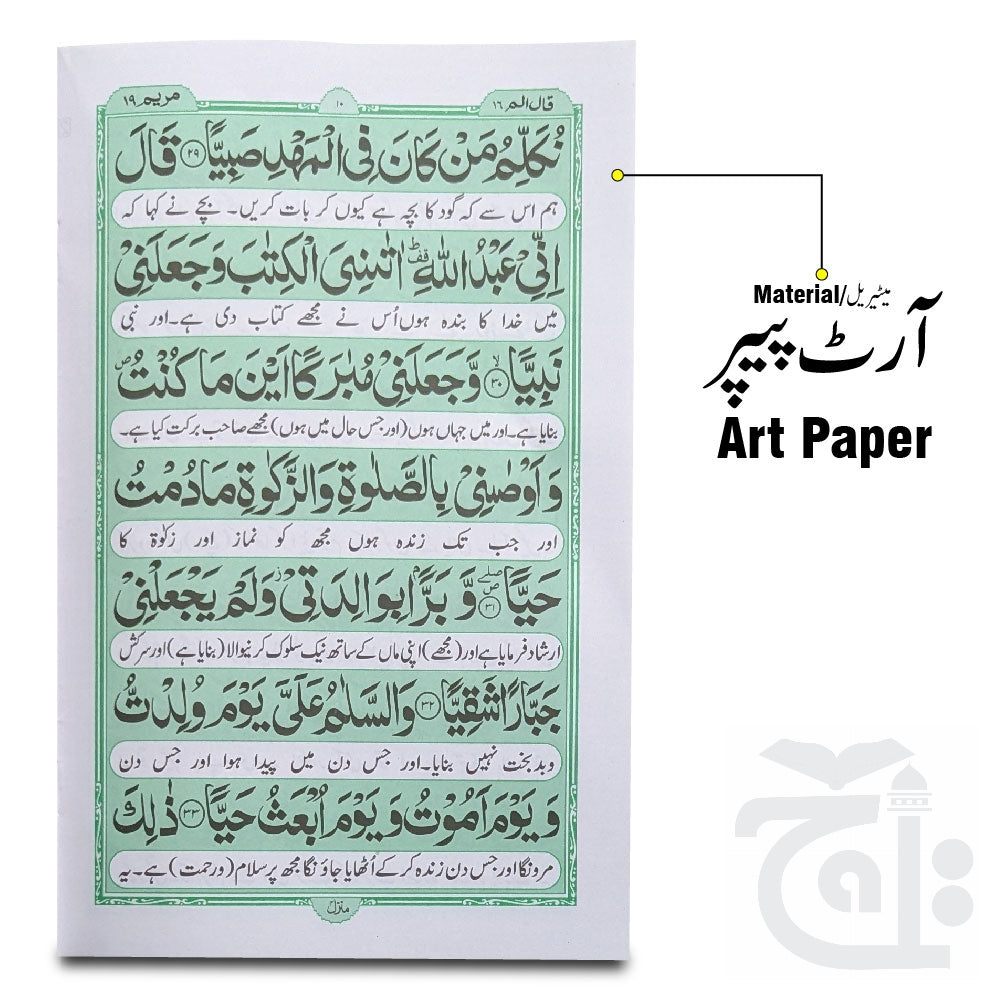 قال الم ١٦
١٠
مریم ١٩
نُكَلِّمُ مَنْ كَانَ فِی الْمَهْدِ صَبِیًّا ٢٩ قَالَ
ہم اس سے کہ گود کا بچہ ہے کیوں کر بات کریں۔ بچے نے کہا کہ
اِنِّیْ عَبْدُ اللّٰهِ قف ط اٰتٰىنِیَ الْكِتٰبَ وَ جَعَلَنِیْ
میں خدا کا بندہ ہوں اُس نے مجھے کتاب دی ہے۔اور نبی
نَبِیًّا لا ٣٠ وَّ جَعَلَنِیْ مُبٰرَكًا اَیْنَ مَا كُنْتُ ص
بنایا ہے۔اور میں جہاں ہوں (اور جس حال میں ہوں) مجھے صاحب برکت کیا ہے۔
وَ اَوْصٰىنِیْ بِالصَّلٰوةِ وَ الزَّكٰوةِ مَا دُمْتُ
اور جب تک زندہ ہوں مجھ کو نماز اور زکوٰۃ کا
حَیًّا صلے ص ٣١ وَّ بَرًّۢا بِوَالِدَتِیْ ز وَ لَمْ یَجْعَلْنِیْ
ارشاد فرمایا ہے اور (مجھے) اپنی ماں کے ساتھ نیک سلوک کرنیوالا (بنایا ہے) اور سرکش
جَبَّارًا شَقِیًّا ٣٢ وَ السَّلٰمُ عَلَیَّ یَوْمَ وُلِدْتُّ
و بدبخت نہیں بنایا۔اور جس دن میں پیدا ہوا اور جس دن
وَ یَوْمَ اَمُوْتُ وَ یَوْمَ اُبْعَثُ حَیًّا ٣٣ ذٰلِكَ
مرونگا اور جس دن زندہ کر کے اُٹھایا جاؤنگا مجھ پر سلام (و رحمت) ہے۔ یہ
منزل
Material/میٹیریل
آرٹ پیپر
Art Paper
تاج